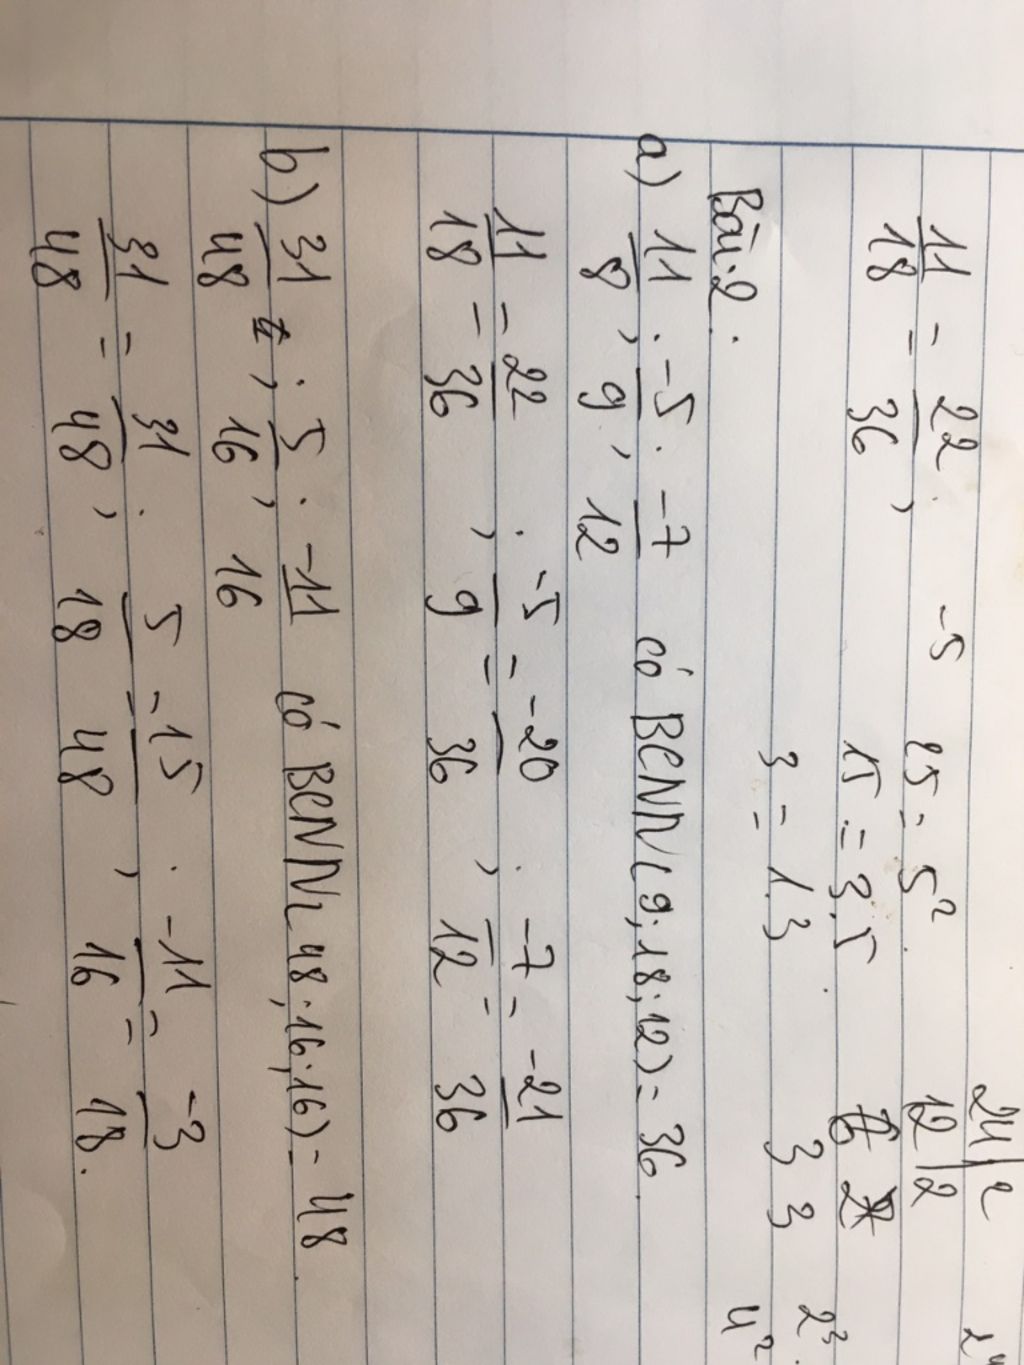 11/18 = 22/36; -5
25 = 5²
15 = 3.5
3 = 1.3
24 | 2
12 | 2
3 3
2³
4²
Bài 2.
a) 11/8; -5/9; -7/12 có BCNN(9;18;12) = 36.
11/18 = 22/36; -5/9 = -20/36; -7/12 = -21/36
b) 31/48; 5/16; -11/16 có BCNN(48;16;16) = 48.
31/48 = 31/48; 5/18 = 15/48; -11/16 = -3/18.